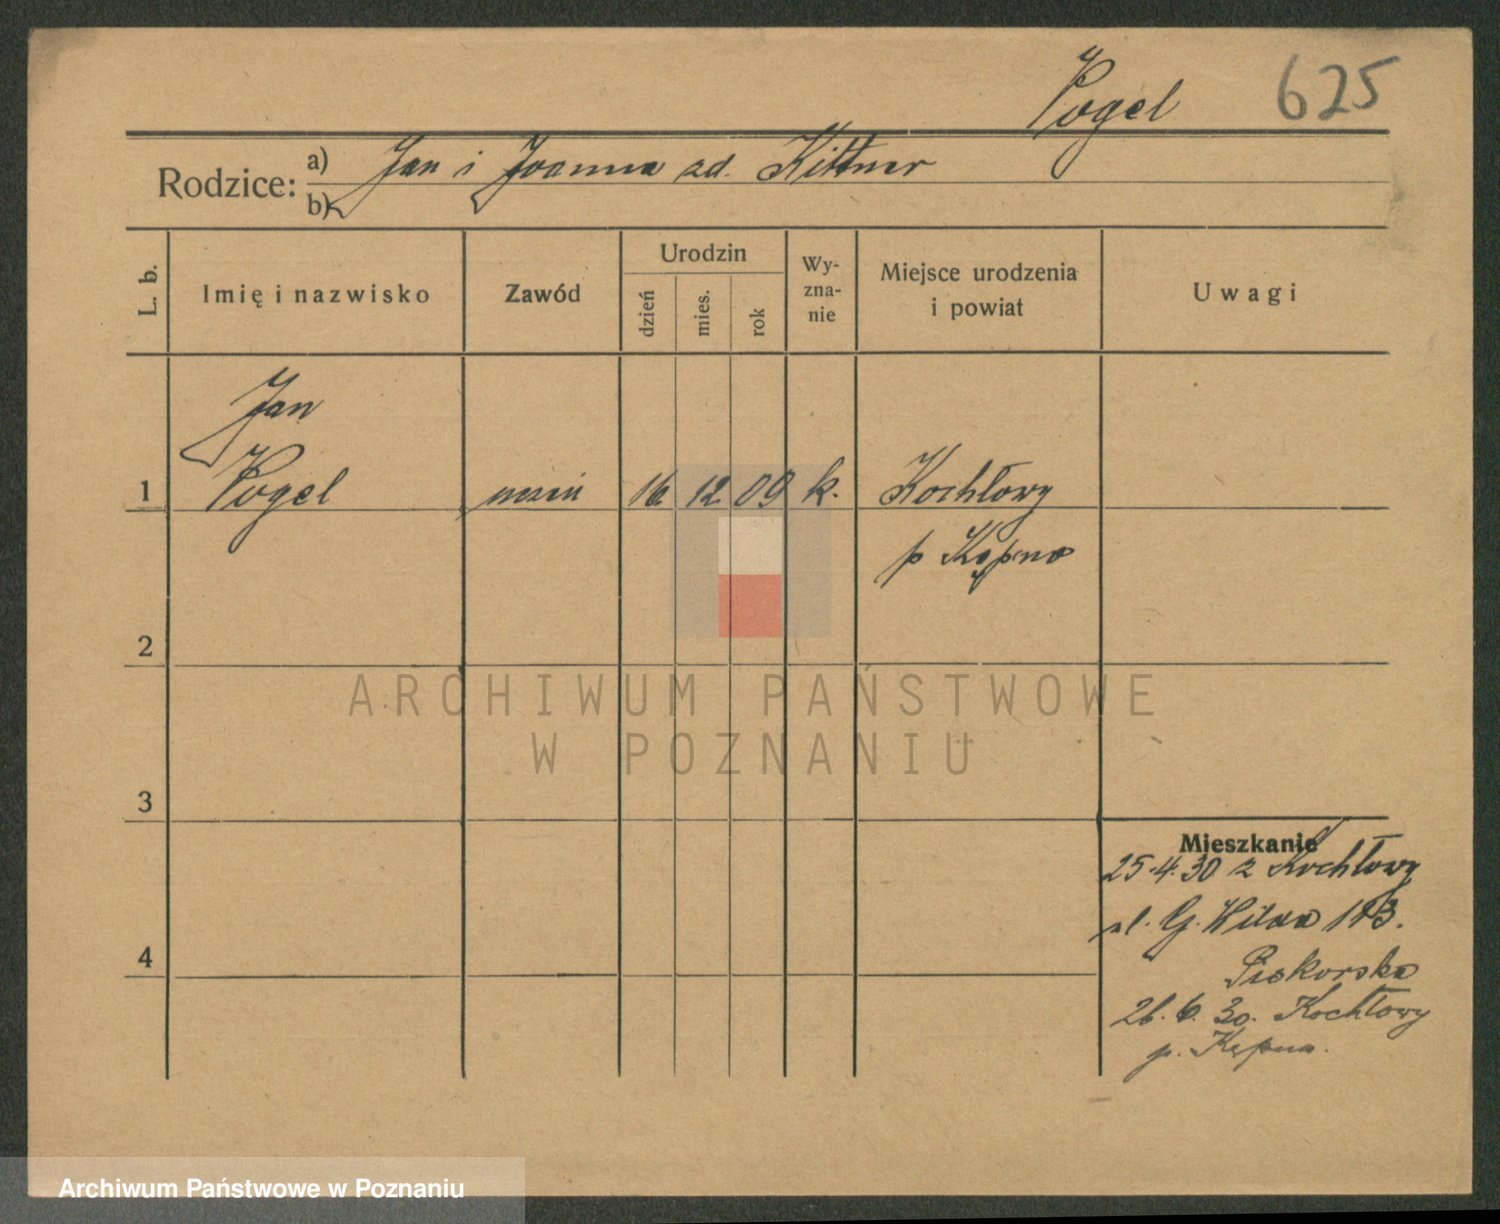 Vogel 625
Rodzice: a) Jan i Joanna zd. Kittner
b)
L. b. Imię i nazwisko Zawód Urodzin dzień mies. rok Wy-zna-nie Miejsce urodzenia i powiat Uwagi
Jan
1 Vogel uczeń 16 12 09 k. Kochłowy
p Kępno
2
3
Mieszkanie
25.4.30 z Kochłowy
ul. G. Wilda
4
Piskorska
26. 6. 30. Kochłowy
p. Kępno.
ARCHIWUM PAŃSTWOWE
W POZNANIU
Archiwum Państwowe w Poznaniu